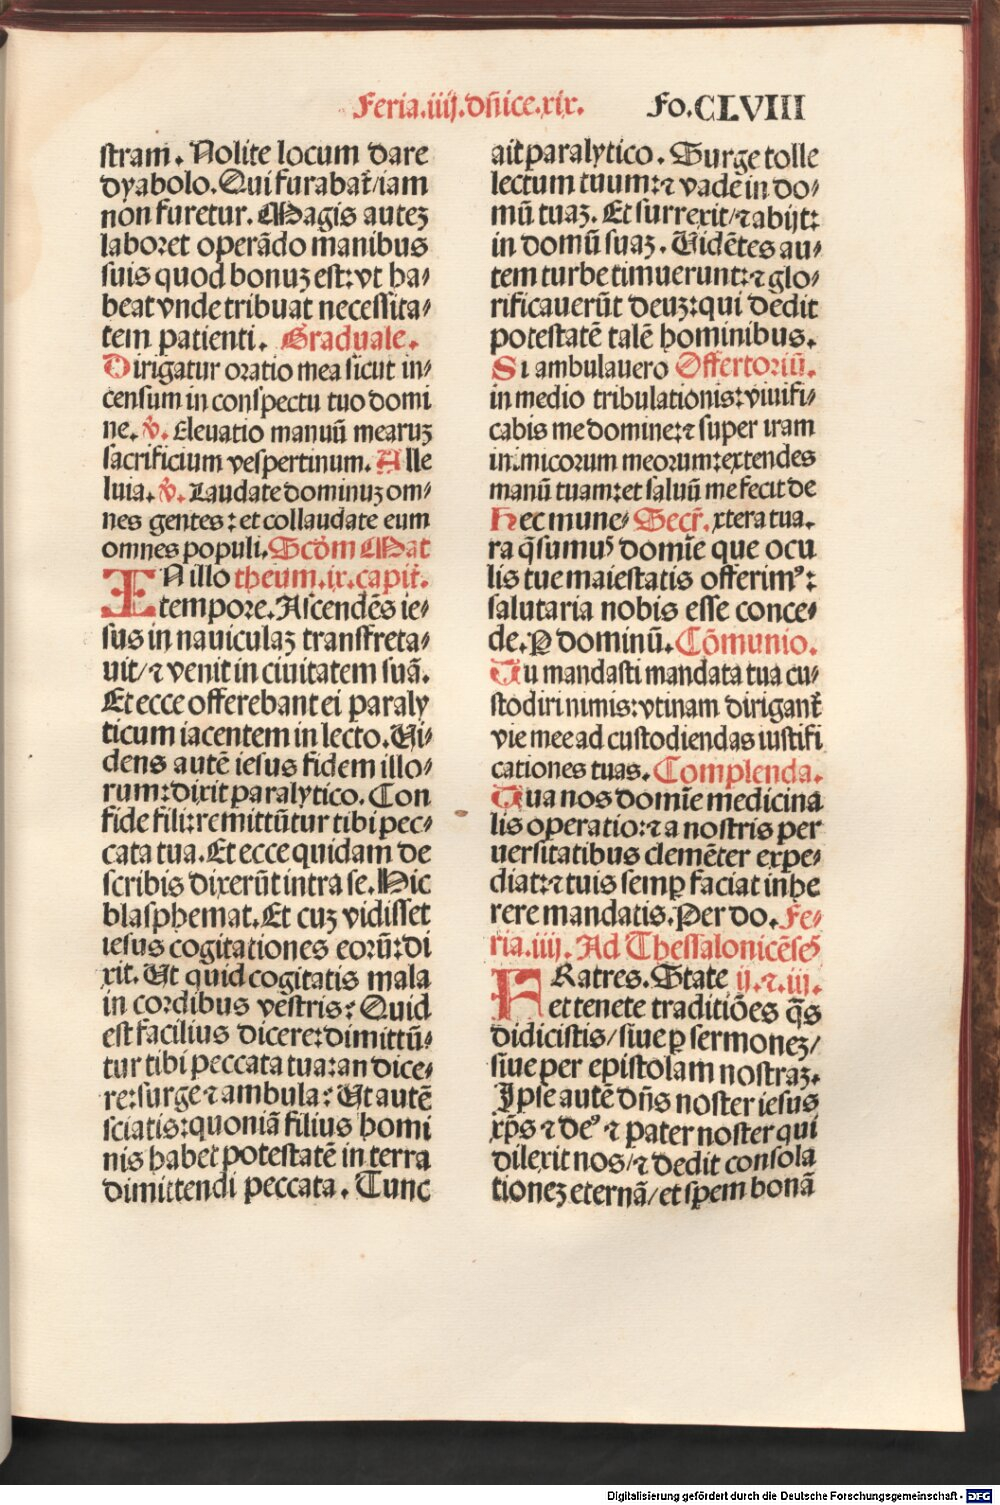 Feria.iiij.dn̄ice.xix. Fo.CLVIII
stram. Nolite locum dare
dyabolo. Qui furabat̄/iam
non furetur. Magis autez
laboret operādo manibus
suis quod bonuz est: vt ha⸗
beat vnde tribuat necessita⸗
tem patienti. Graduale.
Dirigatur oratio mea sicut in⸗
censum in conspectu tuo domi
ne. v̄. Eleuatio manuū mearuz
sacrificium vespertinum. Alle
luia. v̄. Laudate dominuz om⸗
nes gentes: et collaudate eum
omnes populi. Scd̄m Mat
IN illo theum.ix.capit̄.
tempore. Ascendēs ie⸗
sus in nauiculaz transfreta⸗
uit/ ⁊ venit in ciuitatem suā.
Et ecce offerebant ei paraly
ticum iacentem in lecto. Vi⸗
dens autē iesus fidem illo⸗
rum: dixit paralytico. Con
fide fili: remittūtur tibi pec⸗
cata tua. Et ecce quidam de
scribis dixerūt intra se. Hic
blasphemat. Et cuz vidisset
iesus cogitationes eorū: di
xit. Vt quid cogitatis mala
in cordibus vestris: Quid
est facilius dicere: dimittū⸗
tur tibi peccata tua: an dice⸗
re: surge ⁊ ambula: Vt autē
sciatis: quoniā filius homi
nis habet potestatē in terra
dimittendi peccata. Tunc
ait paralytico. Surge tolle
lectum tuum: ⁊ vade in do⸗
mū tuaz. Et surrexit/⁊ abijt:
in domū suaz. Vidētes au⸗
tem turbe timuerunt: ⁊ glo⸗
rificauerūt deuz: qui dedit
potestatē talē hominibus.
Si ambulauero Offertoriū.
in medio tribulationis: viuifi⸗
cabis me domine: ⁊ super iram
inimicorum meorum: extendes
manū tuam: et saluū me fecit de
Hec mune⸗ Secr̄. xtera tua.
ra q̄sumus domīe que ocu
lis tue maiestatis offerimꝰ:
salutaria nobis esse conce⸗
de. P dominū. Cōmunio.
Tu mandasti mandata tua cu⸗
stodiri nimis: vtinam dirigant̄
vie mee ad custodiendas iustifi
cationes tuas. Complenda.
Tua nos domīe medicina
lis operatio: ⁊ a nostris per
uersitatibus clemēter expe⸗
diat: ⁊ tuis semꝑ faciat inhe
rere mandatis. Per do. Fe⸗
ria.iiij. Ad Thessalonicēses
FRatres. State ij.⁊.iij.
et tenete traditiōes q̄s
didicistis/ siue ꝑ sermonez/
siue per epistolam nostraz.
Ipse autē dn̄s noster iesus
xp̄s ⁊ deꝰ ⁊ pater noster qui
dilexit nos/ ⁊ dedit consola
tionez eternā/ et spem bonā
Digitalisierung gefördert durch die Deutsche Forschungsgemeinschaft - DFG